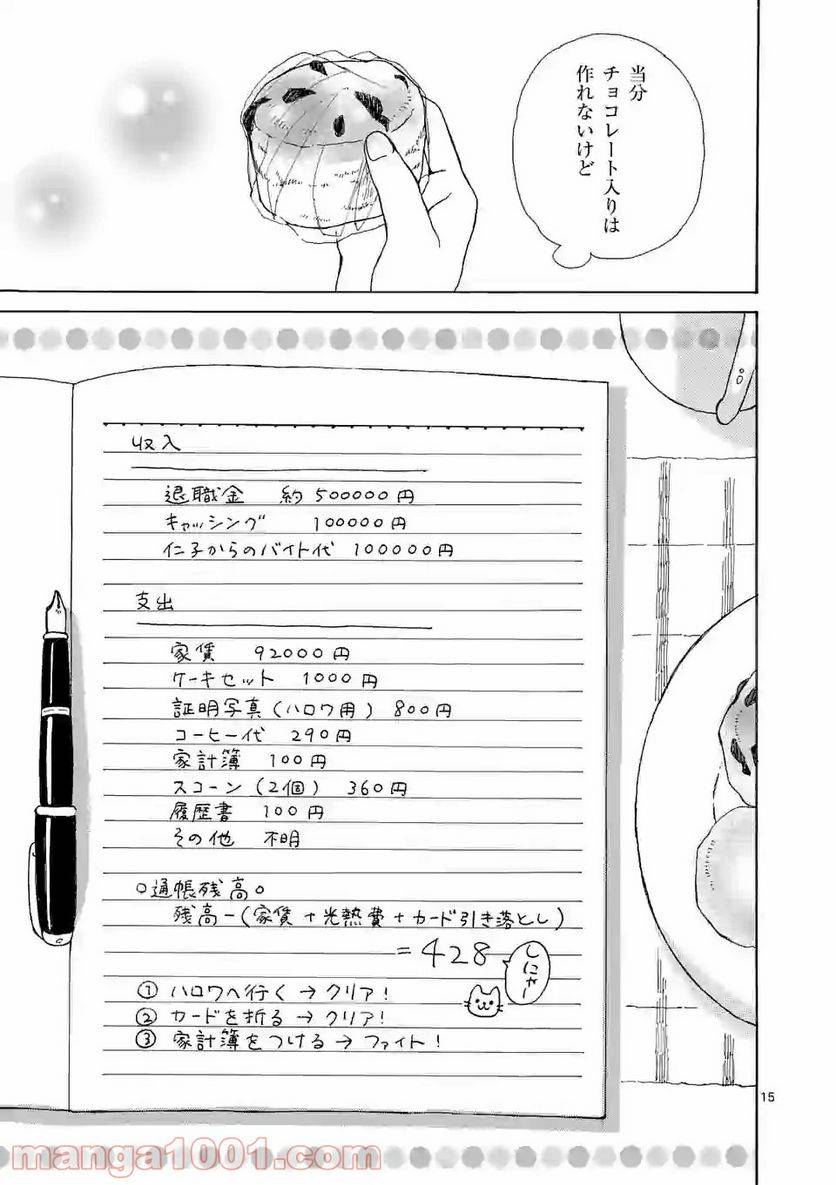 当分
チョコレート入りは
作れないけど
収入
退職金 約500000円
キャッシング 100000円
仁子からのバイト代 100000円
支出
家賃 92000円
ケーキセット 1000円
証明写真(ハロワ用) 800円
コーヒー代 290円
家計簿 100円
スコーン(2個) 360円
履歴書 100円
その他 不明
○通帳残高○
残高-(家賃+光熱費+カード引き落とし)
=428
しにゃー
① ハロワへ行く→クリア!
② カードを折る→クリア!
③ 家計簿をつける→ファイト!
15
manga1001.com